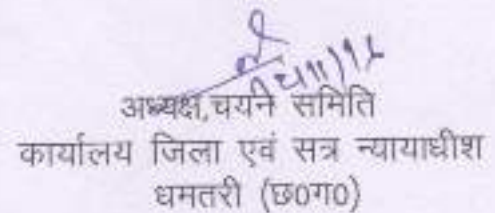 अध्यक्ष,चयन समिति
कार्यालय जिला एवं सत्र न्यायाधीश
धमतरी (छ0ग0)